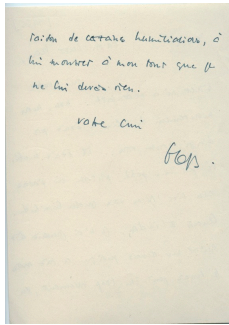 raison de certaines humiliations, à
lui montrer à mon tour que je
ne lui devais rien.
votre ami